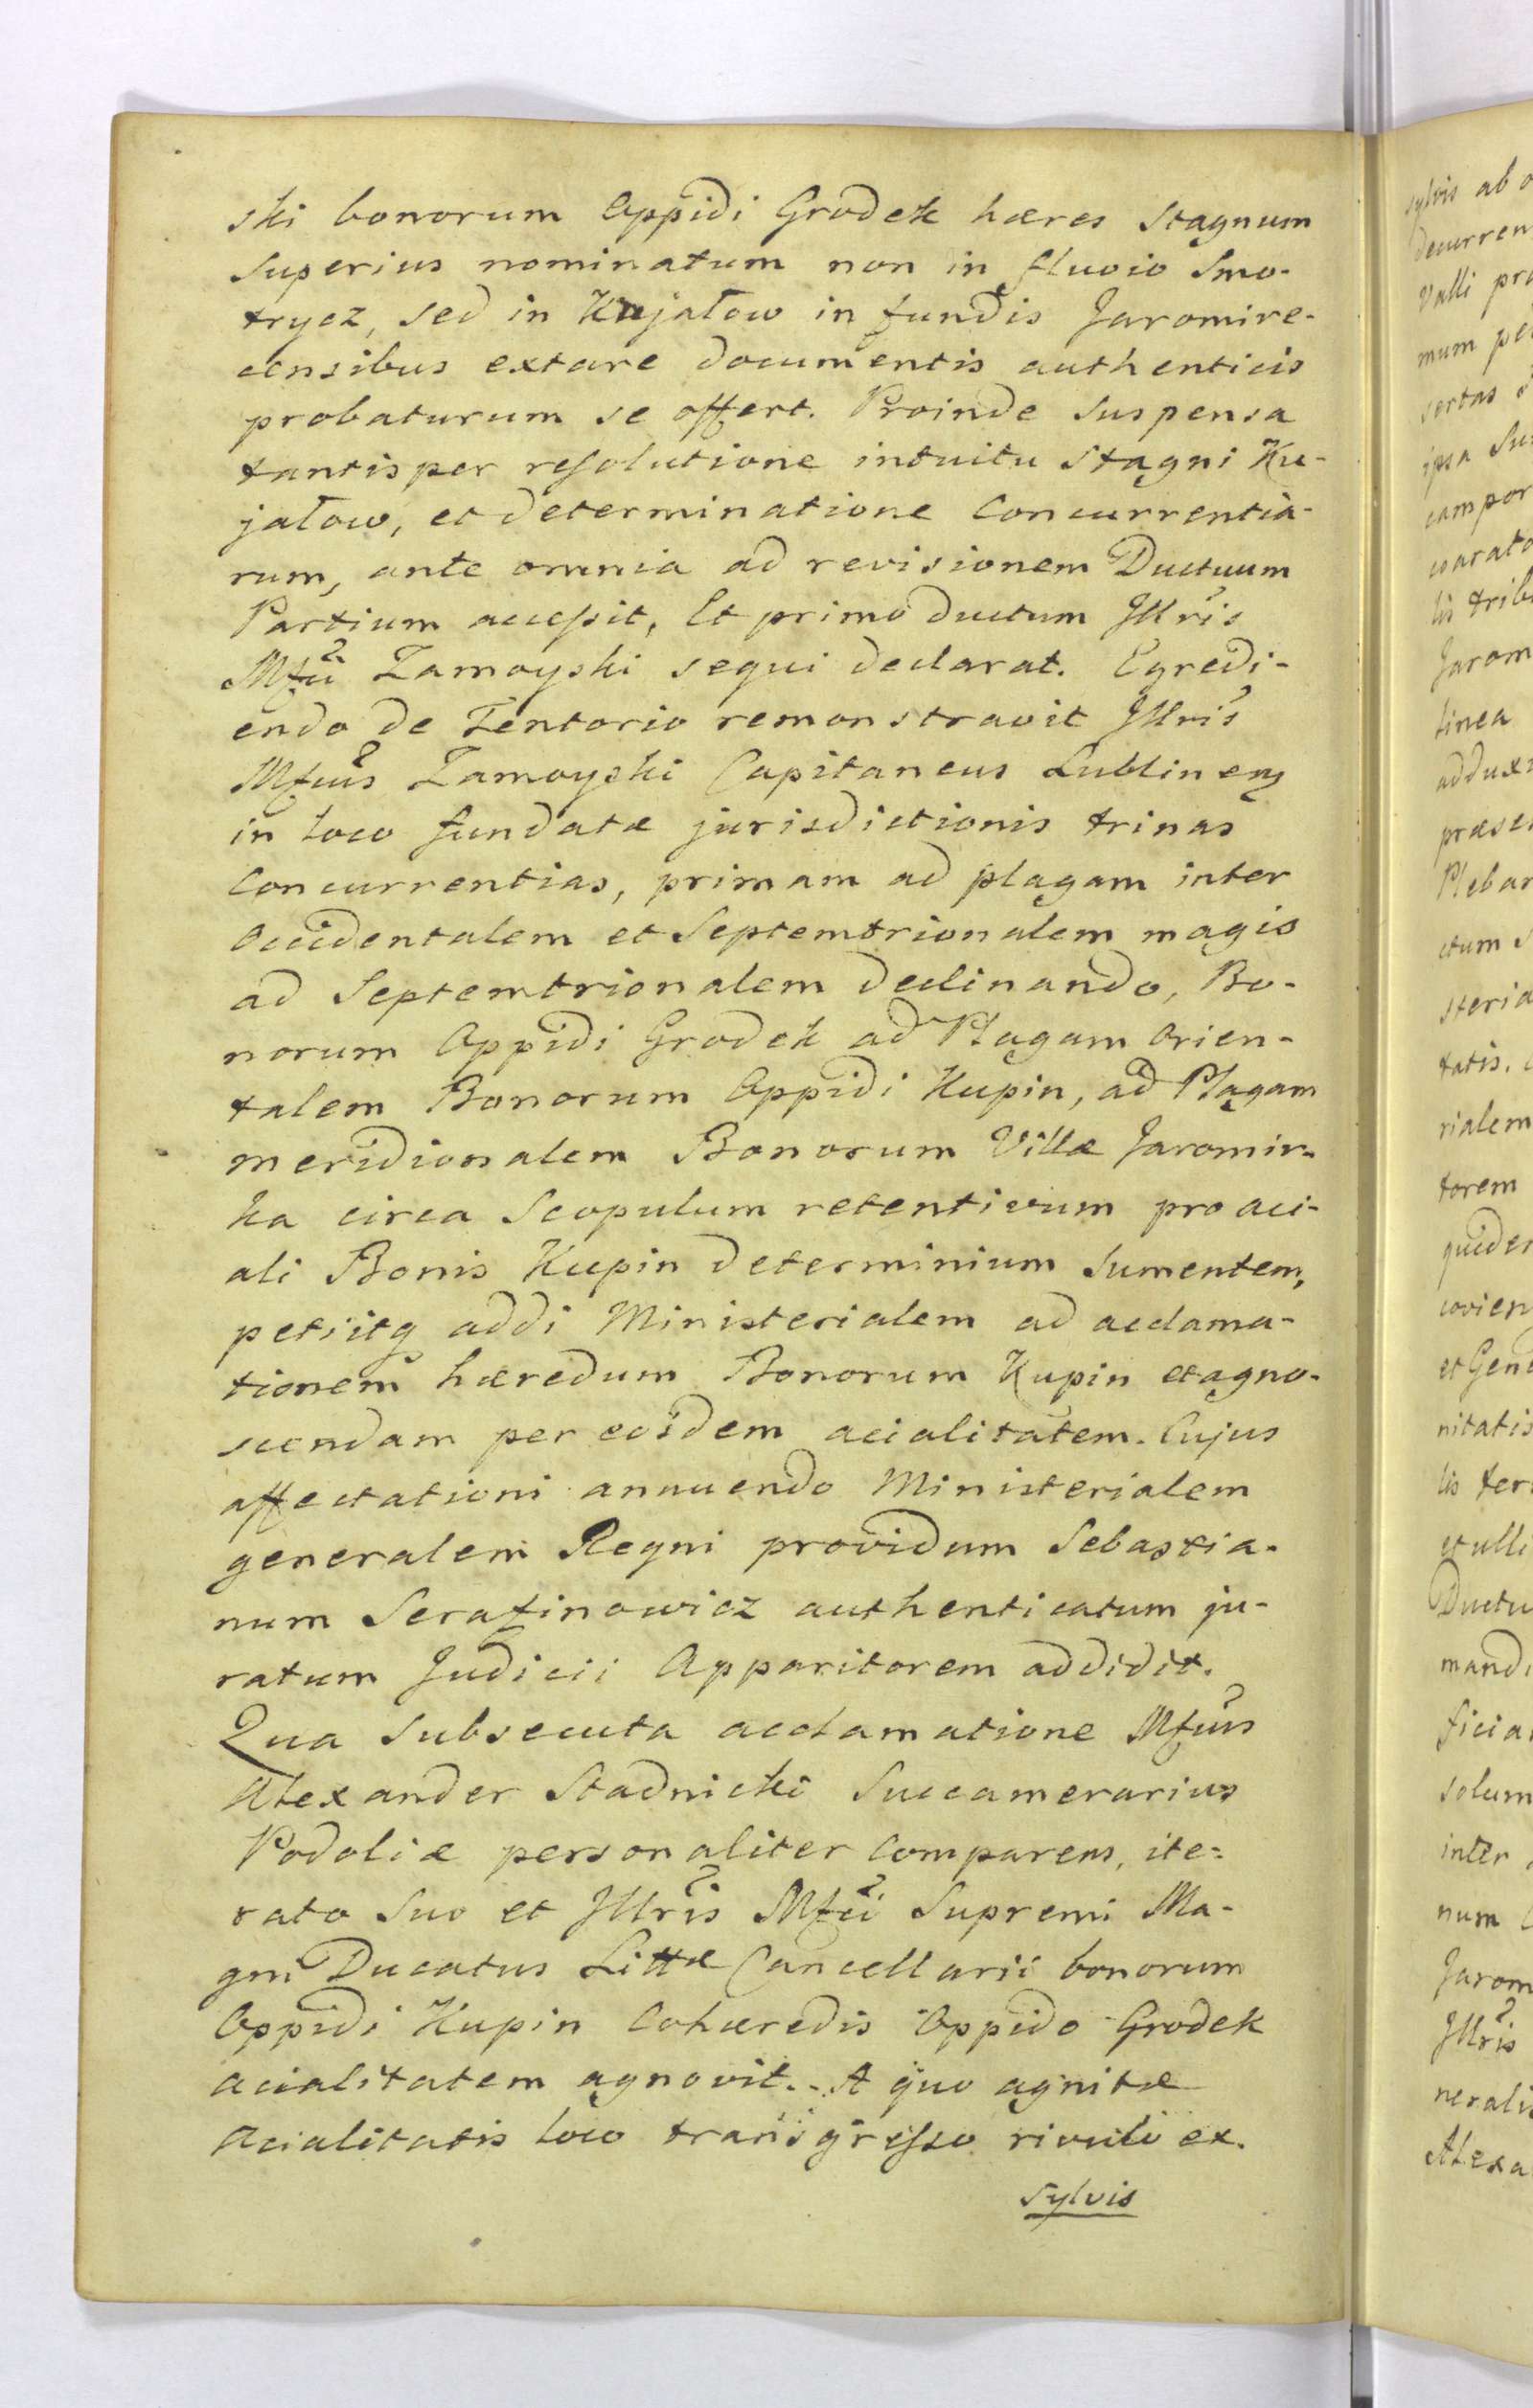 ski bonorum Oppidi Grodek hæres Stagnum
Superius nominatum non in fluvio Smo-
trycz, sed in Kujałow in fundis Jaromire-
censibus extare documentis authenticis
probaturum se offert. Proinde Suspensa
tantisper resolutione intuitu Stagni Ku-
jałow, et determinatione Concurrentia-
rum, ante omnia ad revisionem Ductuum
Partium accessit, Et primo ductum Jllris
Mfci Zamoyski sequi declarat. Egredi-
endo de Tentorio remonstravit Jllris
Mfcus Zamoyski Capitaneus Lublinens
in loco fundatæ jurisdictionis trinas
Concurrentias, primam ad plagam inter
Occidentalem et Septemtrionalem magis
ad Septemtrionalem declinando, Bo-
norum Oppidi Grodek ad Plagam Orien-
talem Bonorum Oppidi Kupin, ad Plagam
meridionalem Bonorum Villæ Jaromir-
ka circa Scopulum retentivum pro aci-
ali Bonis Kupin determinium Sumentem,
petiitq addi Ministerialem ad acclama-
tionem hæredum Bonorum Kupin et agno-
scendam per eosdem acialitatem. Cujus
affectationi annuendo Ministerialem
generalem Regni providum Sebastia-
num Serafinowicz authenticatum ju-
ratum Judicii Apparitorem addidit.
Qua Subsecuta acclamatione Mfcus
Alexander Stadnicki Succamerarius
Podoliæ personaliter Comparens, ite-
rato Suo et Jllris Mfci Supremi Ma-
gni Ducatus Littæ Cancellarii bonorum
Oppidi Kupin Cohæredis Oppido Grodek
acialitatem agnovit. A quo agnitæ
Acialitatis loco transgresso rivulo ex.
Sylvis
sylvis ab
decurren
Valli
mum
sertas
ipsa
campor
coarato
lis
Jarom
linea
adduxi
Plebar
ctum
steria
tatis.
rialem
torem
quidem
covien
et Gen
nitatis
lis
et ulli
Ductu
mand
ficia
solum
inter
num
Jarom
Jllris
nerali
Alexa